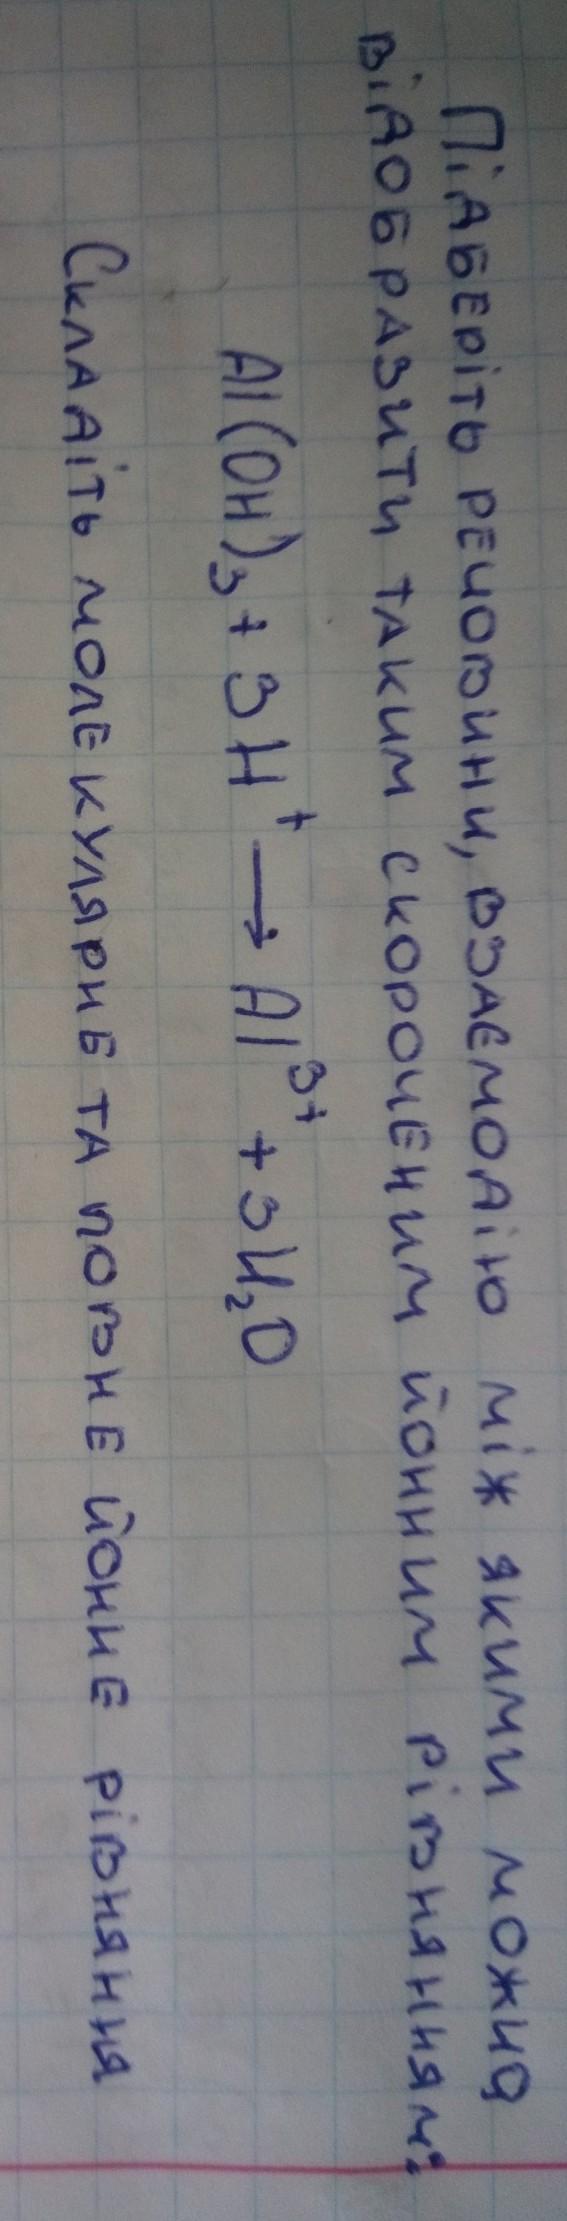 Підберіть речовини, взаємодію між якими можна
відобразити таким скороченим йонним рівнянням:
Al(OH)₃ + 3H⁺ → Al³⁺ + 3H₂O
Складіть молекулярне та повне йонне рівняння